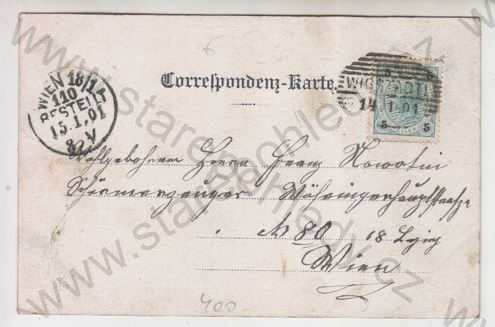 Correspondenz-Karte.
WIEN 18/1
110
BESTELLT
15.1.01
8 V
14 1 01
5 5
Wohlgeboren Herrn Franz Nowotni
Schirmerzeuger Währingerhauptstrasse
№ 80 18 Bezirg
Wien
400
www.stare-pohlednice.cz